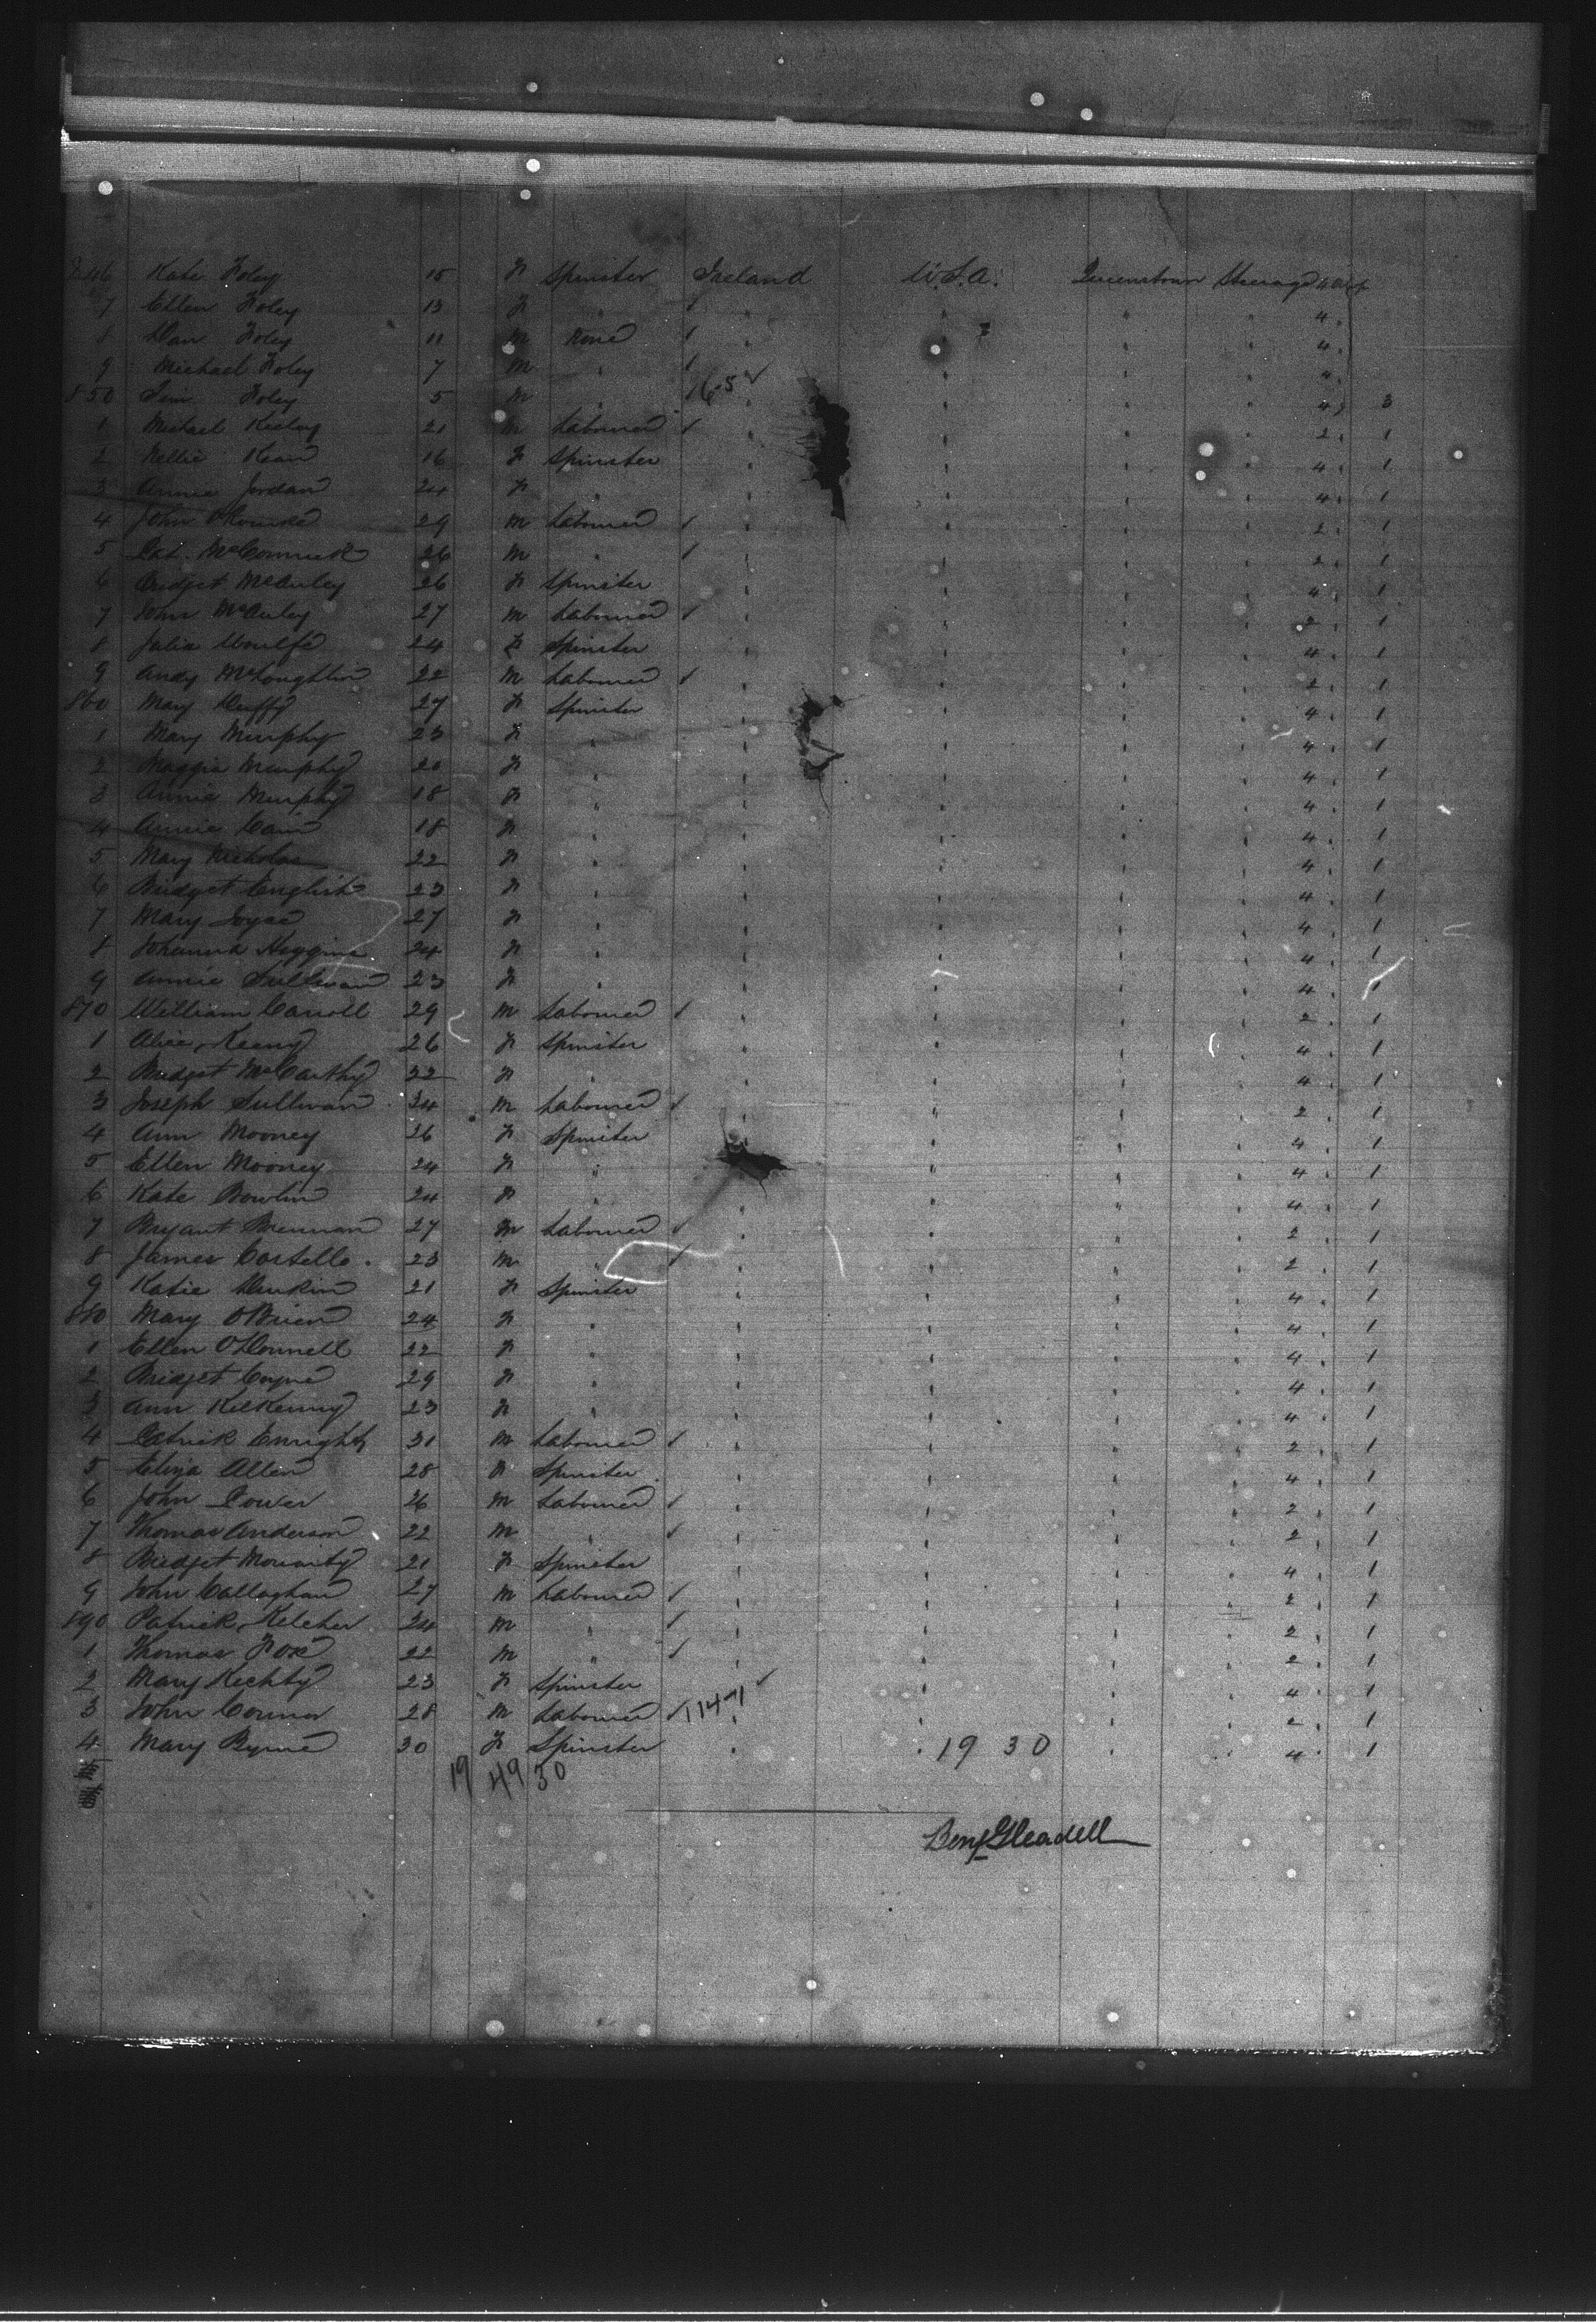 846 Kate Foley 15 F Spinster Ireland U.S.A. Queenstown Steerage 4
7 Ellen Foley 13 F " " " " " 4 "
8 Dan Foley 11 M None " " " " 4 "
9 Michael Foley 7 M " " " " " 4 "
850 Tim Foley 5 M " 6-5 " " " " 4 " 3
1 Michael Kielty 21 M Labourer " " " " 2 " 1
2 Nellie Kean 16 F Spinster " " " " 4 " 1
3 Annie Jordan 24 F " " " " " 4 " 1
4 John O'Rourke 29 M Labourer " " " " 2 " 1
5 Pat. McCormick 26 M " " " " " 2 " 1
6 Bridget McAuley 26 F Spinster " " " " 4 " 1
7 John McAuley 27 M Labourer " " " " 2 " 1
8 Julia Woulfe 24 F Spinster " " " " 4 " 1
9 Andy McLoughlin 22 M Labourer " " " " 2 " 1
860 Mary Duffy 27 F Spinster " " " " 4 " 1
1 Mary Murphy 23 F " " " " " 4 " 1
2 Maggie Murphy 20 F " " " " " 4 " 1
3 Annie Murphy 18 F " " " " " 4 " 1
4 Annie Cain 18 F " " " " " 4 " 1
5 Mary Nicholas 22 F " " " " " 4 " 1
6 Bridget English 23 F " " " " " 4 " 1
7 Mary Joyce 27 F " " " " " 4 " 1
8 Johanna Higgins 24 F " " " " " 4 " 1
9 Annie Sullivan 23 F " " " " " 4 " 1
870 William Carroll 29 M Labourer " " " " 2 " 1
1 Alice Keeny 26 F Spinster " " " " 4 " 1
2 Bridget McCarthy 22 F " " " " " 4 " 1
3 Joseph Sullivan 34 M Labourer " " " " 2 " 1
4 Ann Mooney 26 F Spinster " " " " 4 " 1
5 Ellen Mooney 24 F " " " " " 4 " 1
6 Kate Bowlin 24 F " " " " " 4 " 1
7 Bryant Brennan 27 M Labourer " " " " 2 " 1
8 James Costello 23 M " " " " " 2 " 1
9 Katie Durkin 21 F Spinster " " " " 4 " 1
880 Mary O'Brien 24 F " " " " " 4 " 1
1 Ellen O'Donnell 22 F " " " " " 4 " 1
2 Bridget Coyne 29 F " " " " " 4 " 1
3 Ann Kilkenny 23 F " " " " " 4 " 1
4 Patrick Enright 31 M Labourer " " " " 2 " 1
5 Eliza Allen 28 F Spinster " " " " 4 " 1
6 John Power 26 M Labourer " " " " 2 " 1
7 Thomas Anderson 22 M " " " " " 2 " 1
8 Bridget Moriarity 21 F Spinster " " " " 4 " 1
9 John Callaghan 27 M Labourer " " " " 2 " 1
890 Patrick Kelcher 24 M " " " " " 2 " 1
1 Thomas Fox 22 M " " " " " 2 " 1
2 Mary Kechty 23 F Spinster " " " " 4 " 1
3 John Connor 28 M Labourer 114-1 " " " " 2 " 1
4 Mary Byrne 30 F Spinster " " 19 30 " " 4 " 1
19 49 30
Benj Gleadell